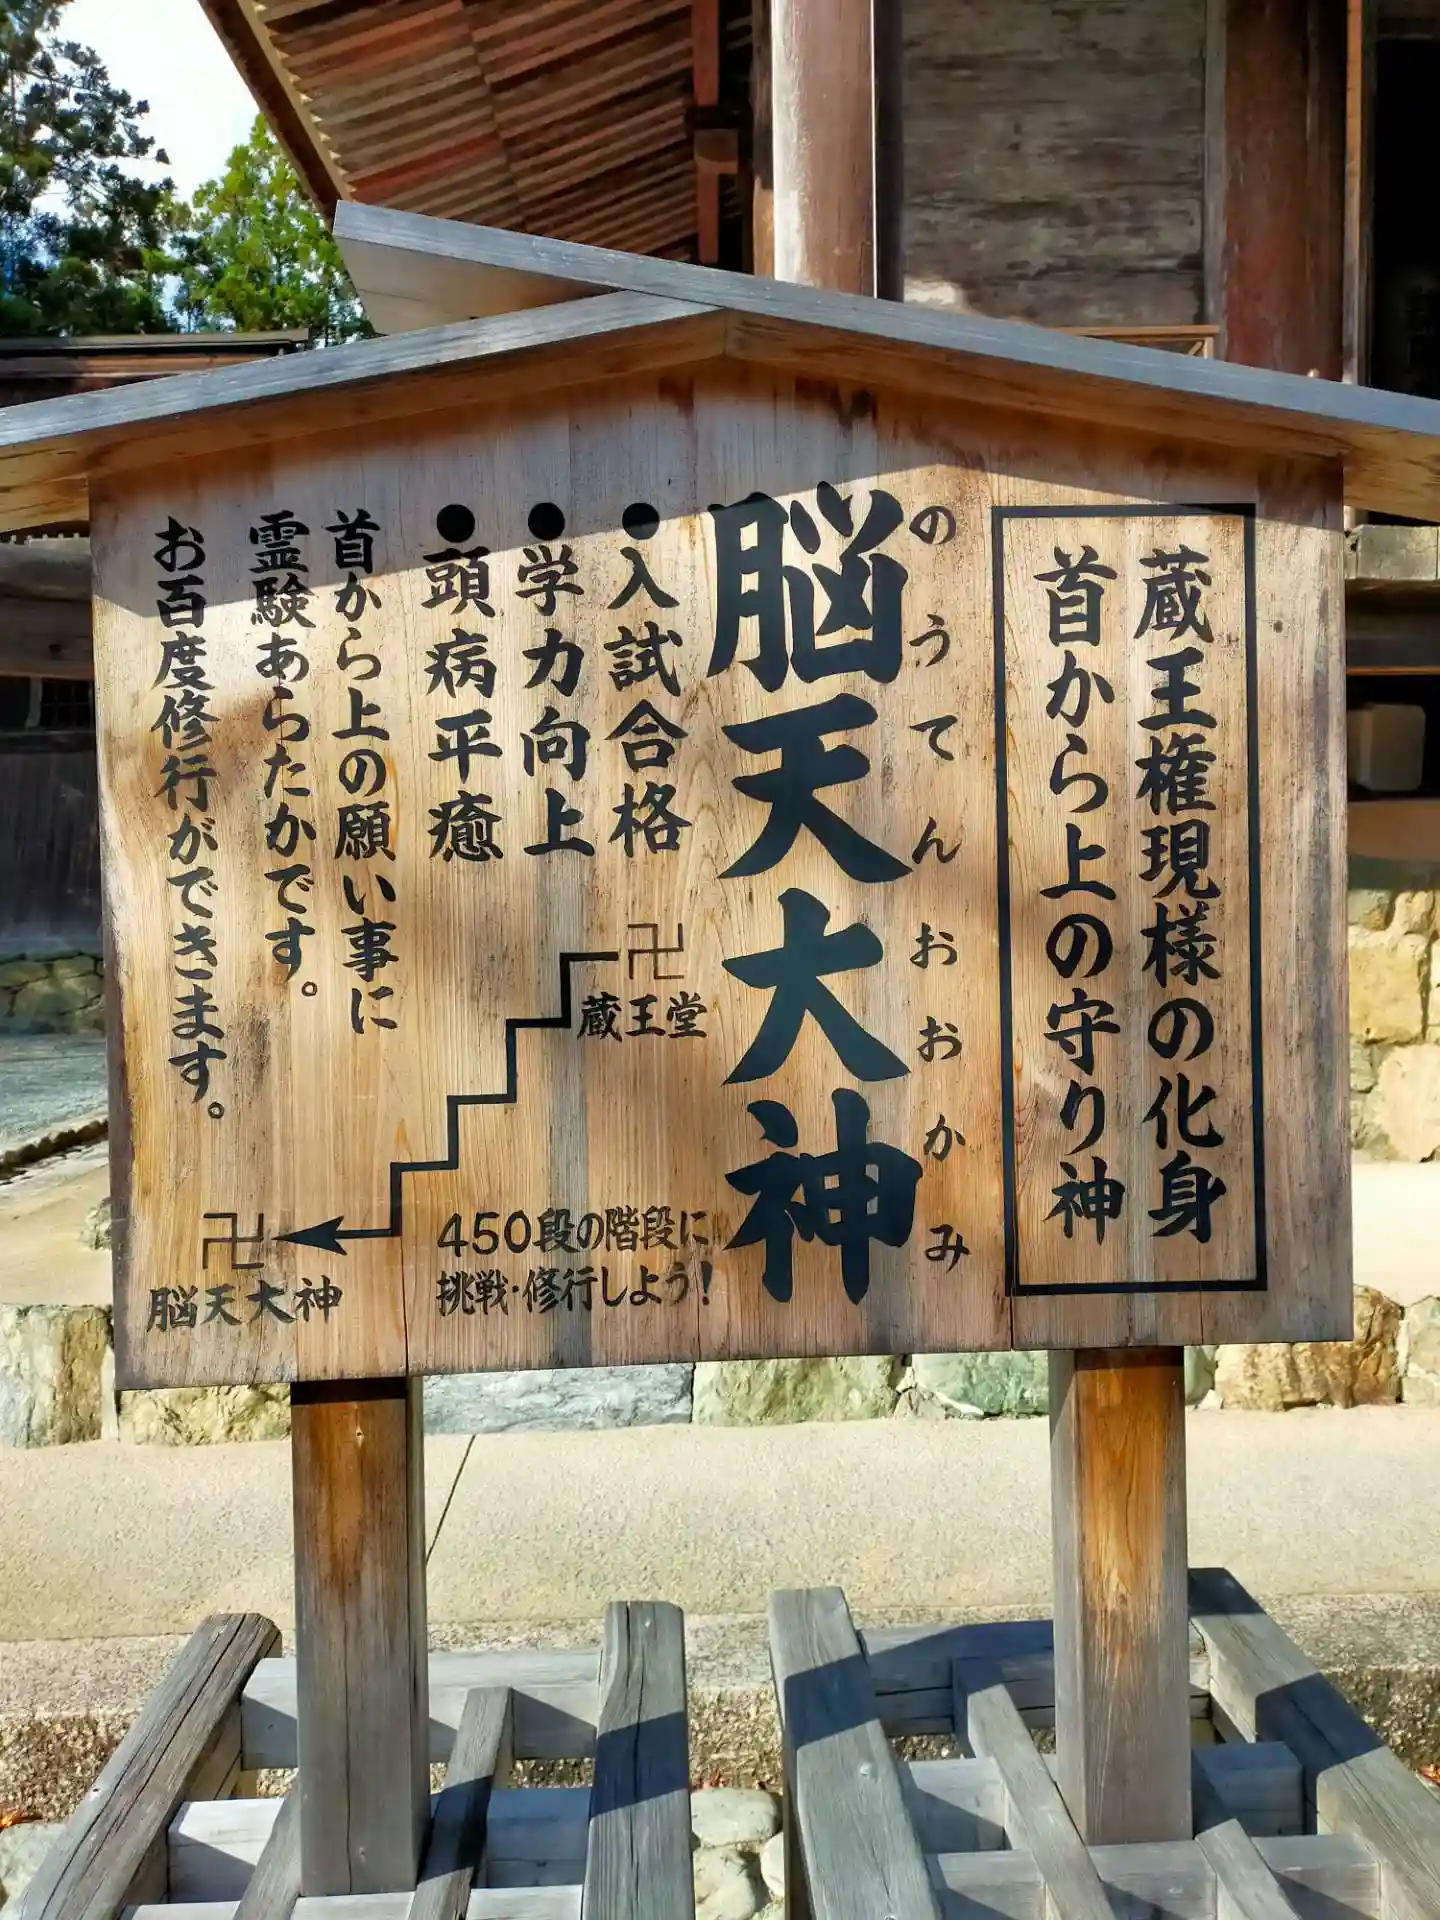 蔵王権現様の化身
首から上の守り神
のうてんおおかみ
脳天大神
●入試合格
●学力向上
●頭病平癒
首から上の願い事に
霊験あらたかです。
お百度修行ができます。
卍
蔵王堂
450段の階段に
挑戦・修行しよう!
卍
脳天大神